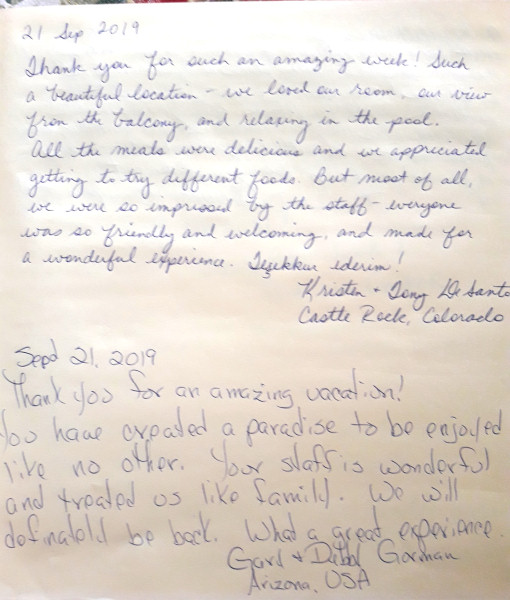 21 Sep 2019
Thank you for such an amazing week! Such
a beautiful location - we loved our room, our view
from the balcony, and relaxing in the pool.
All the meals were delicious and we appreciated
getting to try different foods. But most of all,
we were so impressed by the staff - everyone
was so friendly and welcoming, and made for
a wonderful experience. Teşekkur ederim!
Kristen + Tony DeSanto
Castle Rock, Colorado
Sept 21, 2019
Thank you for an amazing vacation!
You have created a paradise to be enjoyed
like no other. Your staff is wonderful
and treated us like family. We will
definately be back. What a great experience.
Gary + Gorman
Arizona, USA